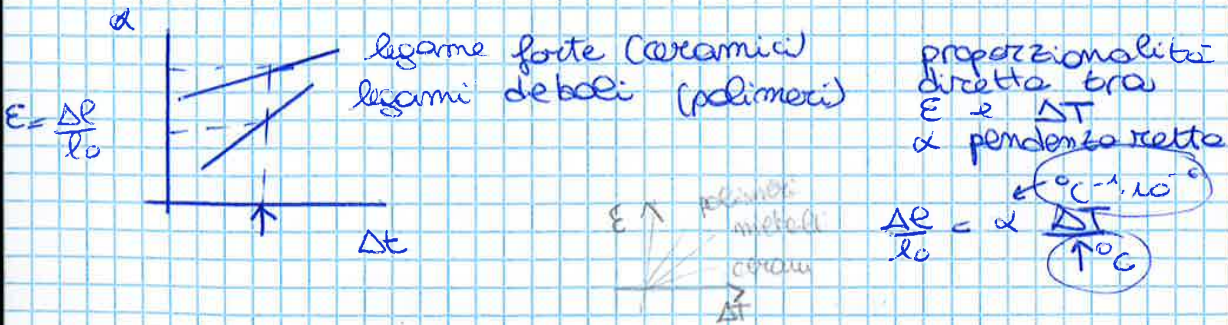 α
legame forte (ceramici)
legami deboli (polimeri)
ε = Δl/l₀
Δt
proporzionalità
diretta tra
ε e ΔT
α pendenza retta
°C⁻¹·10⁻⁶
Δl/l₀ = α ΔT
↑ °C
ε
polimeri
metalli
ceram
ΔT